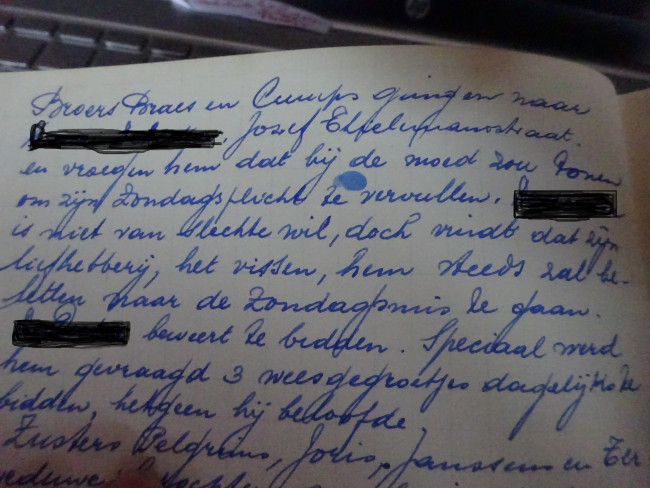 Broers Braes en Cumps gingen naar
Jozef straat.
en vroegen hem dat hij de moed zou tonen
om zijn Zondagsplicht te vervullen.
is niet van slechte wil, doch vindt dat zijn
liefhebberij, het vissen, hem steeds zal be-
letten naar de Zondagsmis te gaan.
beweert te bidden. Speciaal werd
hem gevraagd 3 weesgegroetjes dagelijks te
bidden, hetgeen hij beloofde.
Zusters Pelgrims, Joris, Janssens en Ter